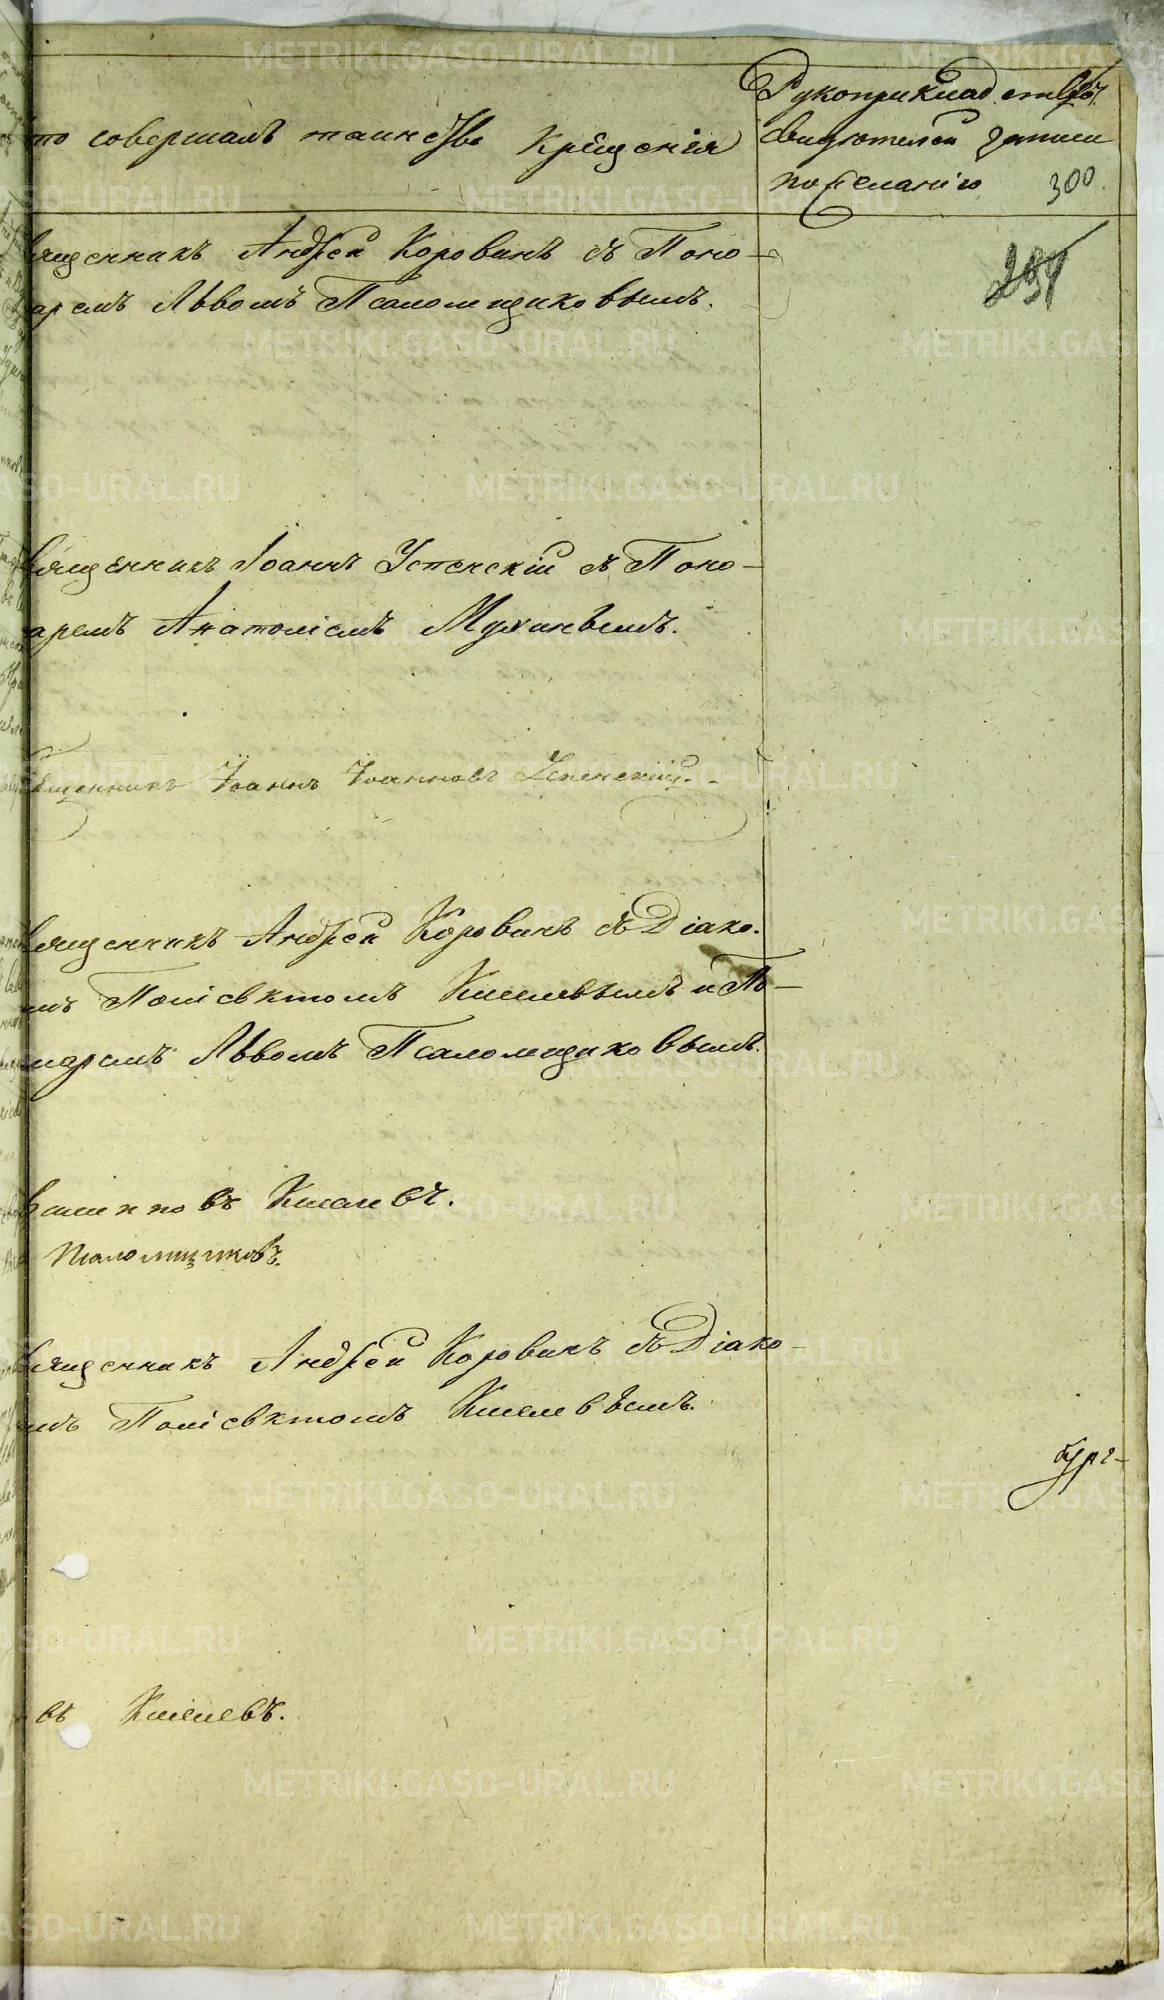 то совершалъ таинство Крещенія
Рукоприкладство
свидѣтелей записи
по желанію 300
291
вященникъ Андрей Коровинъ съ Поно-
аремъ Львомъ Псаломщиковымъ.
вященникъ Іоаннъ Успенскій съ Поно-
аремъ Анатоліемъ Мухинымъ.
вященникъ Іоаннъ Іоанновъ Успенскій.
вященникъ Андрей Коровинъ съ Діако-
мъ Поліевктомъ Киселевымъ и По-
маремъ Львомъ Псаломщиковымъ.
въ Киселевъ.
Псаломщиковъ.
вященникъ Андрей Коровинъ съ Діако-
мъ Поліевктомъ Киселевымъ.
въ Киселевъ.
METRIKI.GASO-URAL.RU